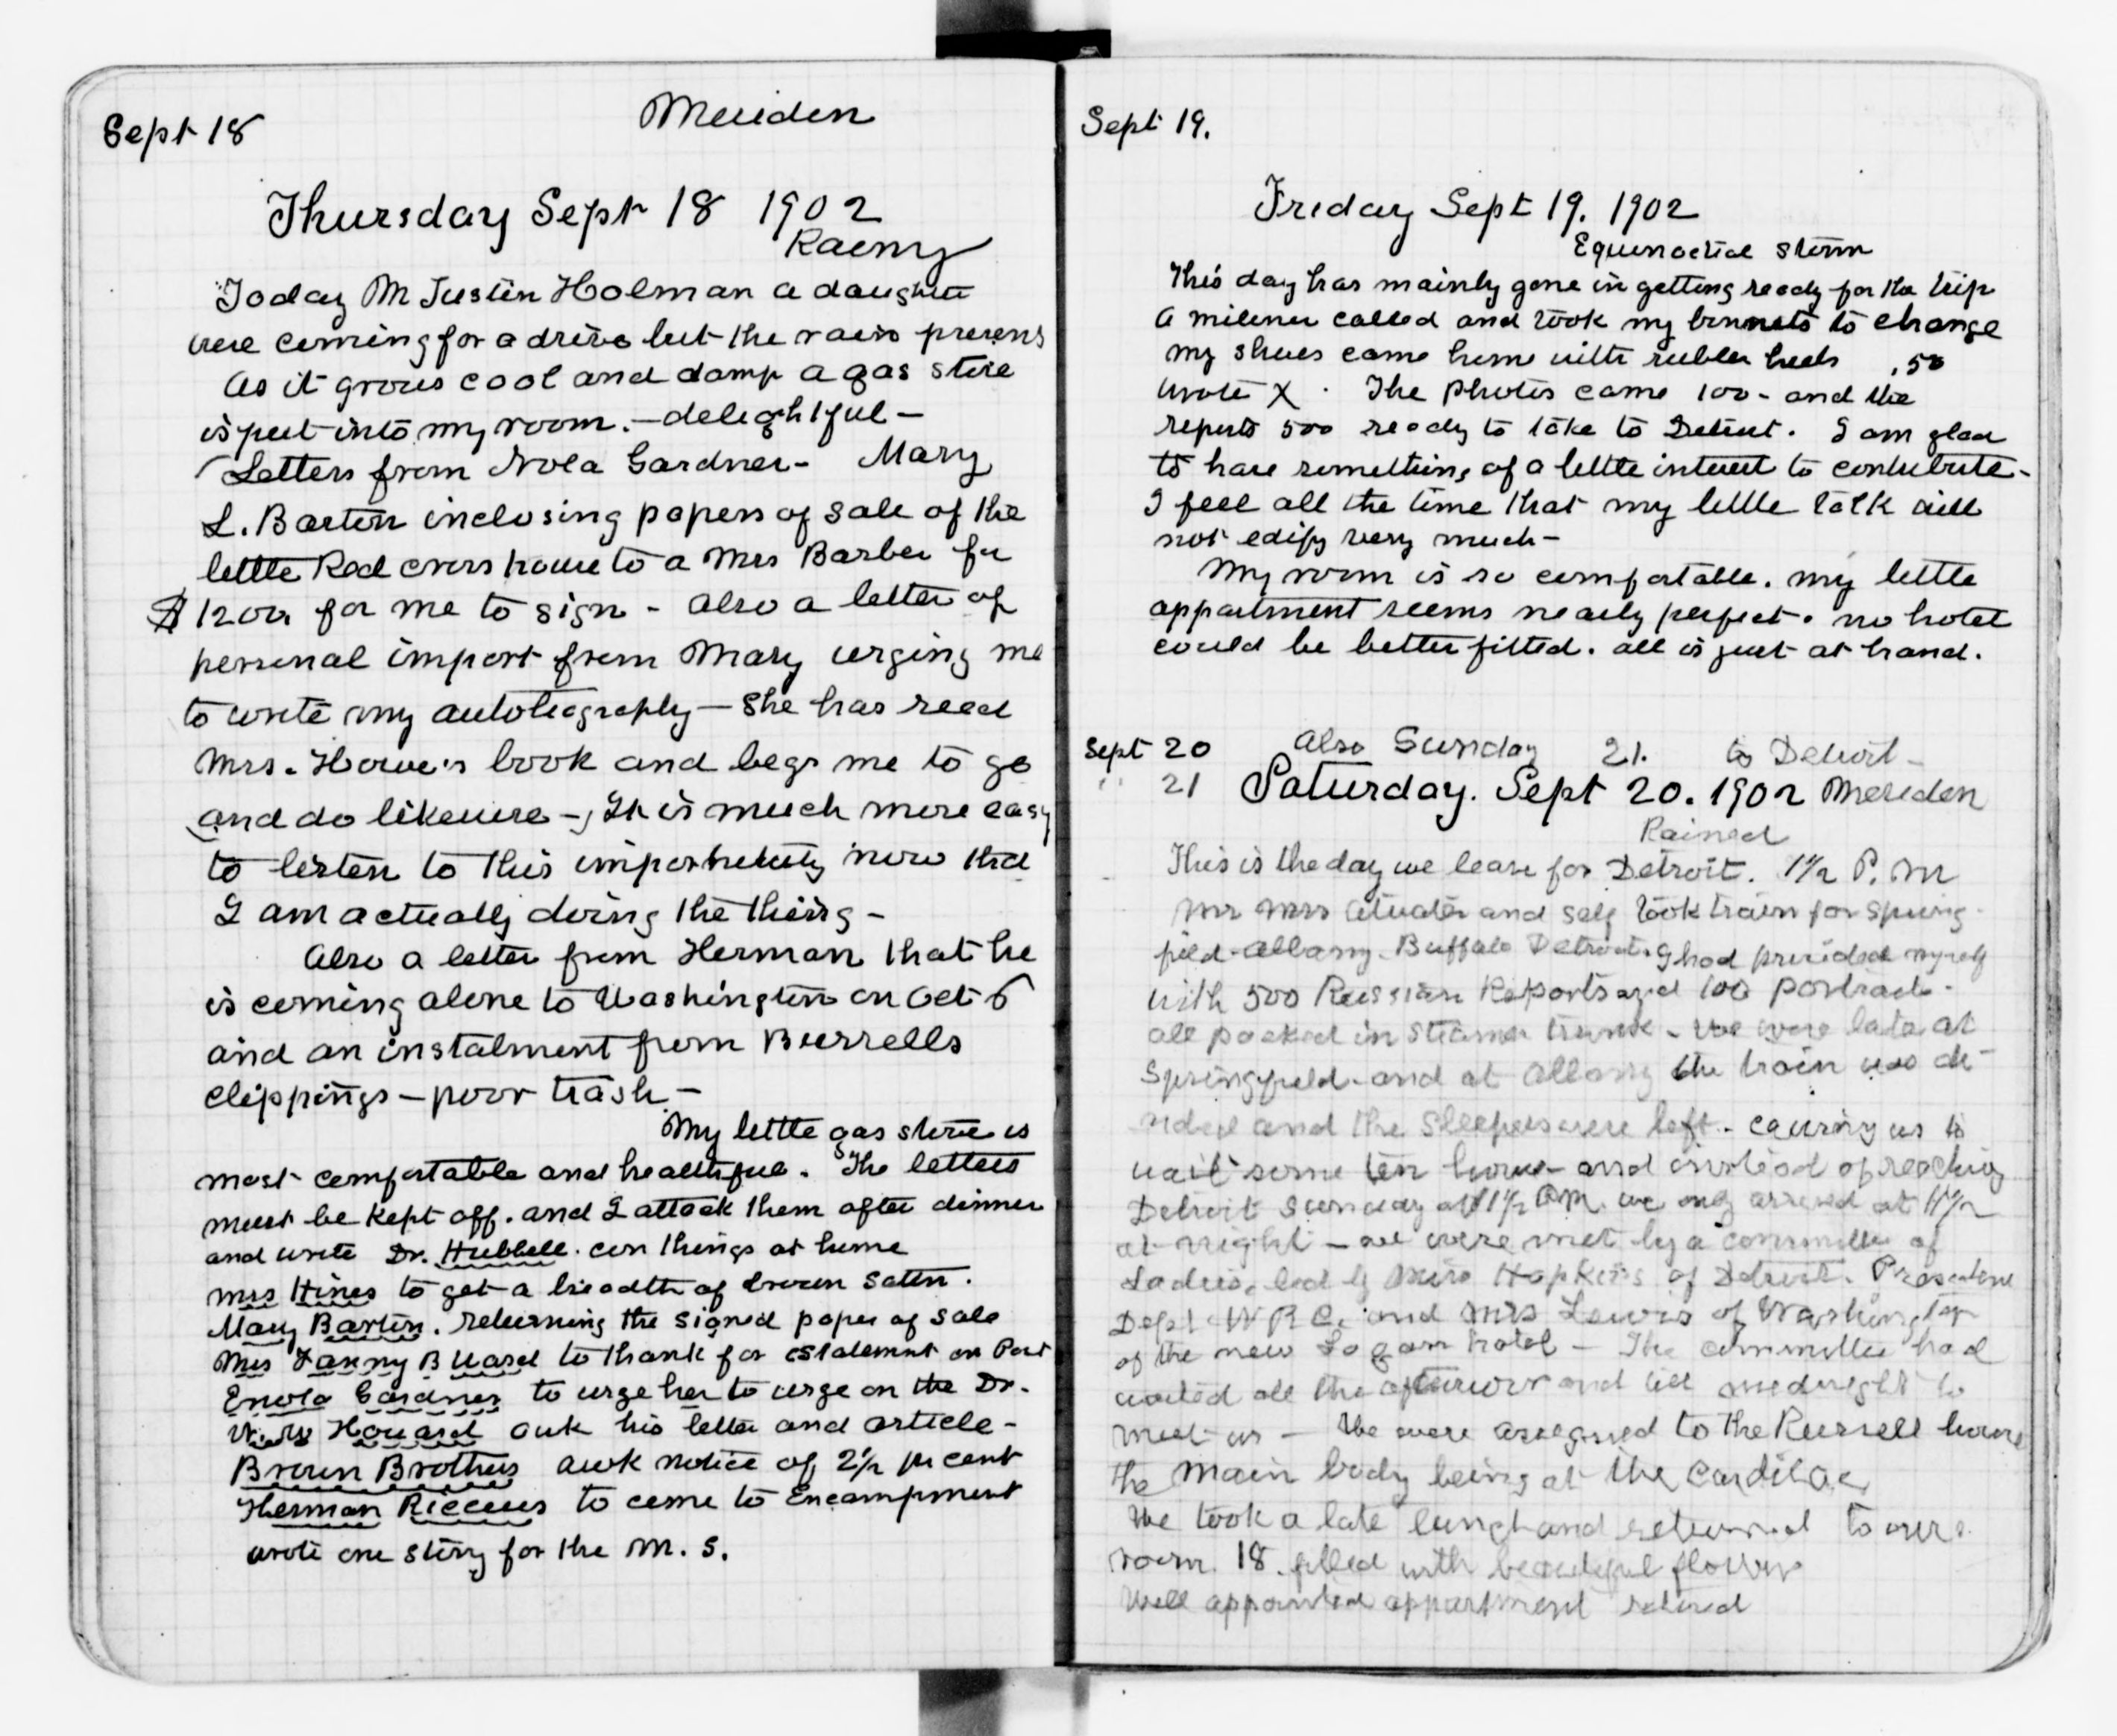 Sept 18
Meriden
Thursday Sept 18 1902
Rainy
Today M Justin Holman a daughter
were coming for a drive but the rain prevents
As it grows cool and damp a gas stove
is put into my room. — delightful —
Letters from Nola Gardner - Mary
L. Barton inclosing papers of sale of the
little Red cross house to a Mrs Barber for
$1200. for me to sign - also a letter of
personal import from Mary urging me
to write my autobiography — she has read
Mrs. Howe's book and begs me to go
and do likewise - It is much more easy
to listen to this importunity now that
I am actually doing the thing -
Also a letter from Herman that he
is coming alone to Washington on Oct 6
and an instalment from Burrells
clippings — poor trash. -
My little gas stove is
most comfortable and healthful. The letters
must be kept off. and I attack them after dinner
and write Dr. Hubbell. con things at home
Mrs Hines to get a breadth of brown satin.
Mary Barton. returning the signed paper of sale
Mrs Fanny B Ward to thank for estalemnt on Port
Enola Gardner to urge her to urge on the Dr.
W. W Howard ack his letter and article -
Brown Brothers ack notice of 2½ per cent
Herman Riccius to come to Encampment
wrote one story for the M. S.
Sept 19.
Friday Sept 19. 1902
Equenoctial storm
This day has mainly gone in getting ready for the trip
A milener called and took my bonnets to change
my shoes came home with rubber heels .50
wrote X . The photos came 100 - and the
reports 500 ready to take to Detroit. I am glad
to have something of a little interest to contribute -
I feel all the time that my little talk will
not edify very much -
My room is so comfortable. my little
appartment seems nearly perfect. no hotel
could be better fitted. all is just at hand.
Sept 20 Also Sunday 21. to Detroit -
" 21 Saturday. Sept 20. 1902 Meriden
Rained
This is the day we leave for Detroit. 1½ P. M
Mr Mrs Atwater and self took train for Spring-
field - Albany - Buffalo Detroit. I had provided myself
with 500 Russian Reports and 100 portraits.
all packed in steamer trunk - We were late at
Springfield - and at Albany the train was di-
vided and the sleepers were left - causing us to
wait some ten hours - and instead of reaching
Detroit Sunday at 1½ P.M. we only arrived at 11½
at night - we were met by a committee of
Ladies, led by Miss Hopkins of Detroit. President
Dept W R C. and Mrs Lewis of Washington
of the new Logan hotel - The committee had
waited all the afternoon and till midnight to
meet us - We were assigned to the Russell house
the main body being at the Cardilac
We took a late lunch and returned to our
room 18. filled with beautiful flowers
Well appointed appartment retired